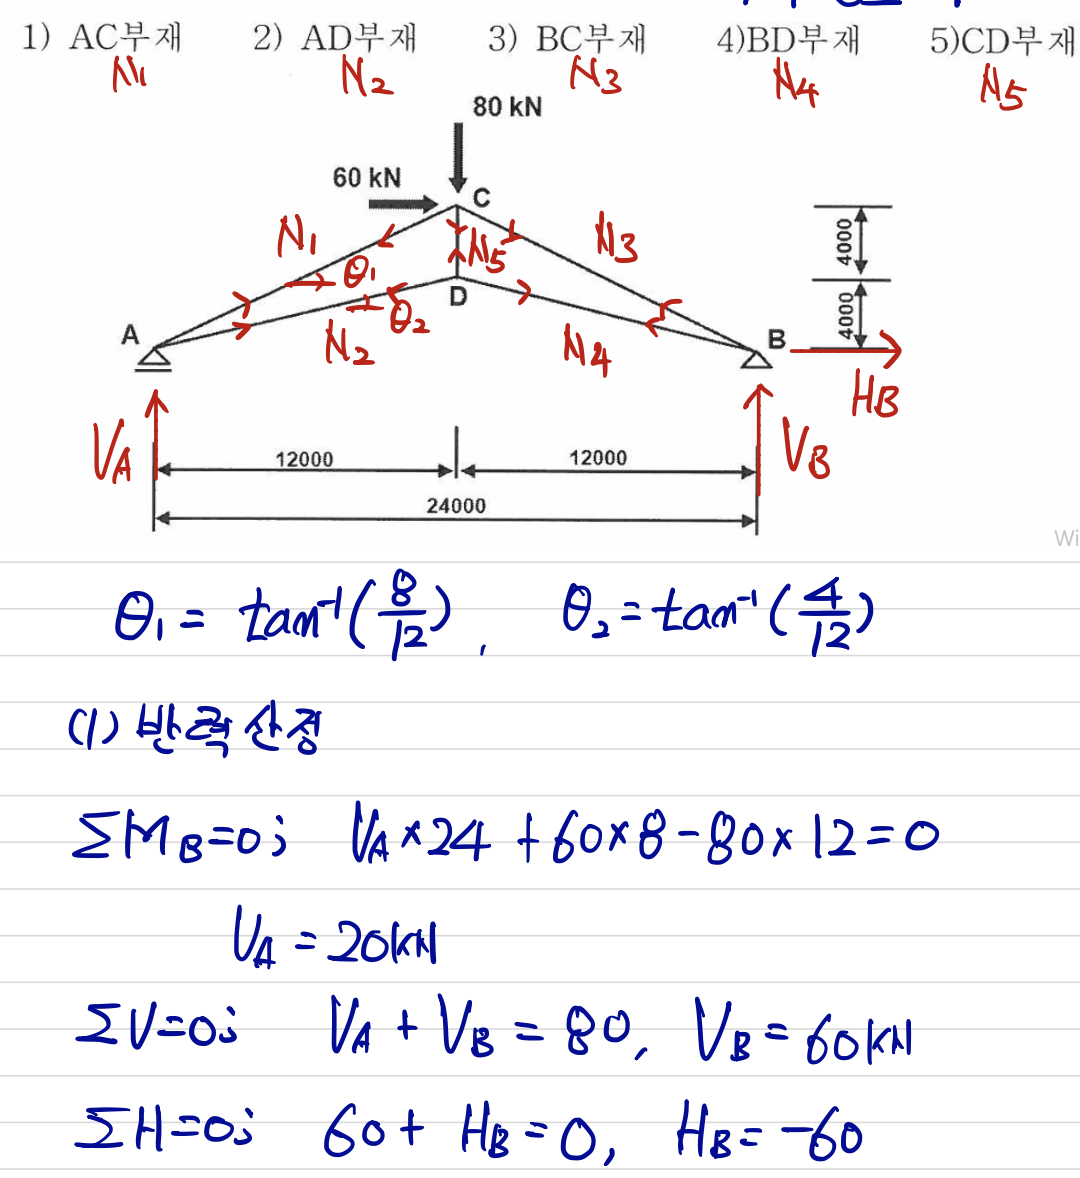 1) AC부재 2) AD부재 3) BC부재 4)BD부재 5)CD부재
N₁ N₂ N₃ N₄ N₅
80 kN
60 kN
C
N₁ θ₁ N₅ N₃
4000
D
A
θ₂
N₂ N₄
4000
B
H_B
V_A V_B
12000 12000
24000
Wi
θ₁ = tan⁻¹(8/12), θ₂ = tan⁻¹(4/12)
(1) 반력산정
ΣM_B=0; V_A×24 +60×8-80×12=0
V_A = 20kN
ΣV=0; V_A + V_B = 80, V_B = 60kN
ΣH=0; 60+ H_B = 0, H_B = -60